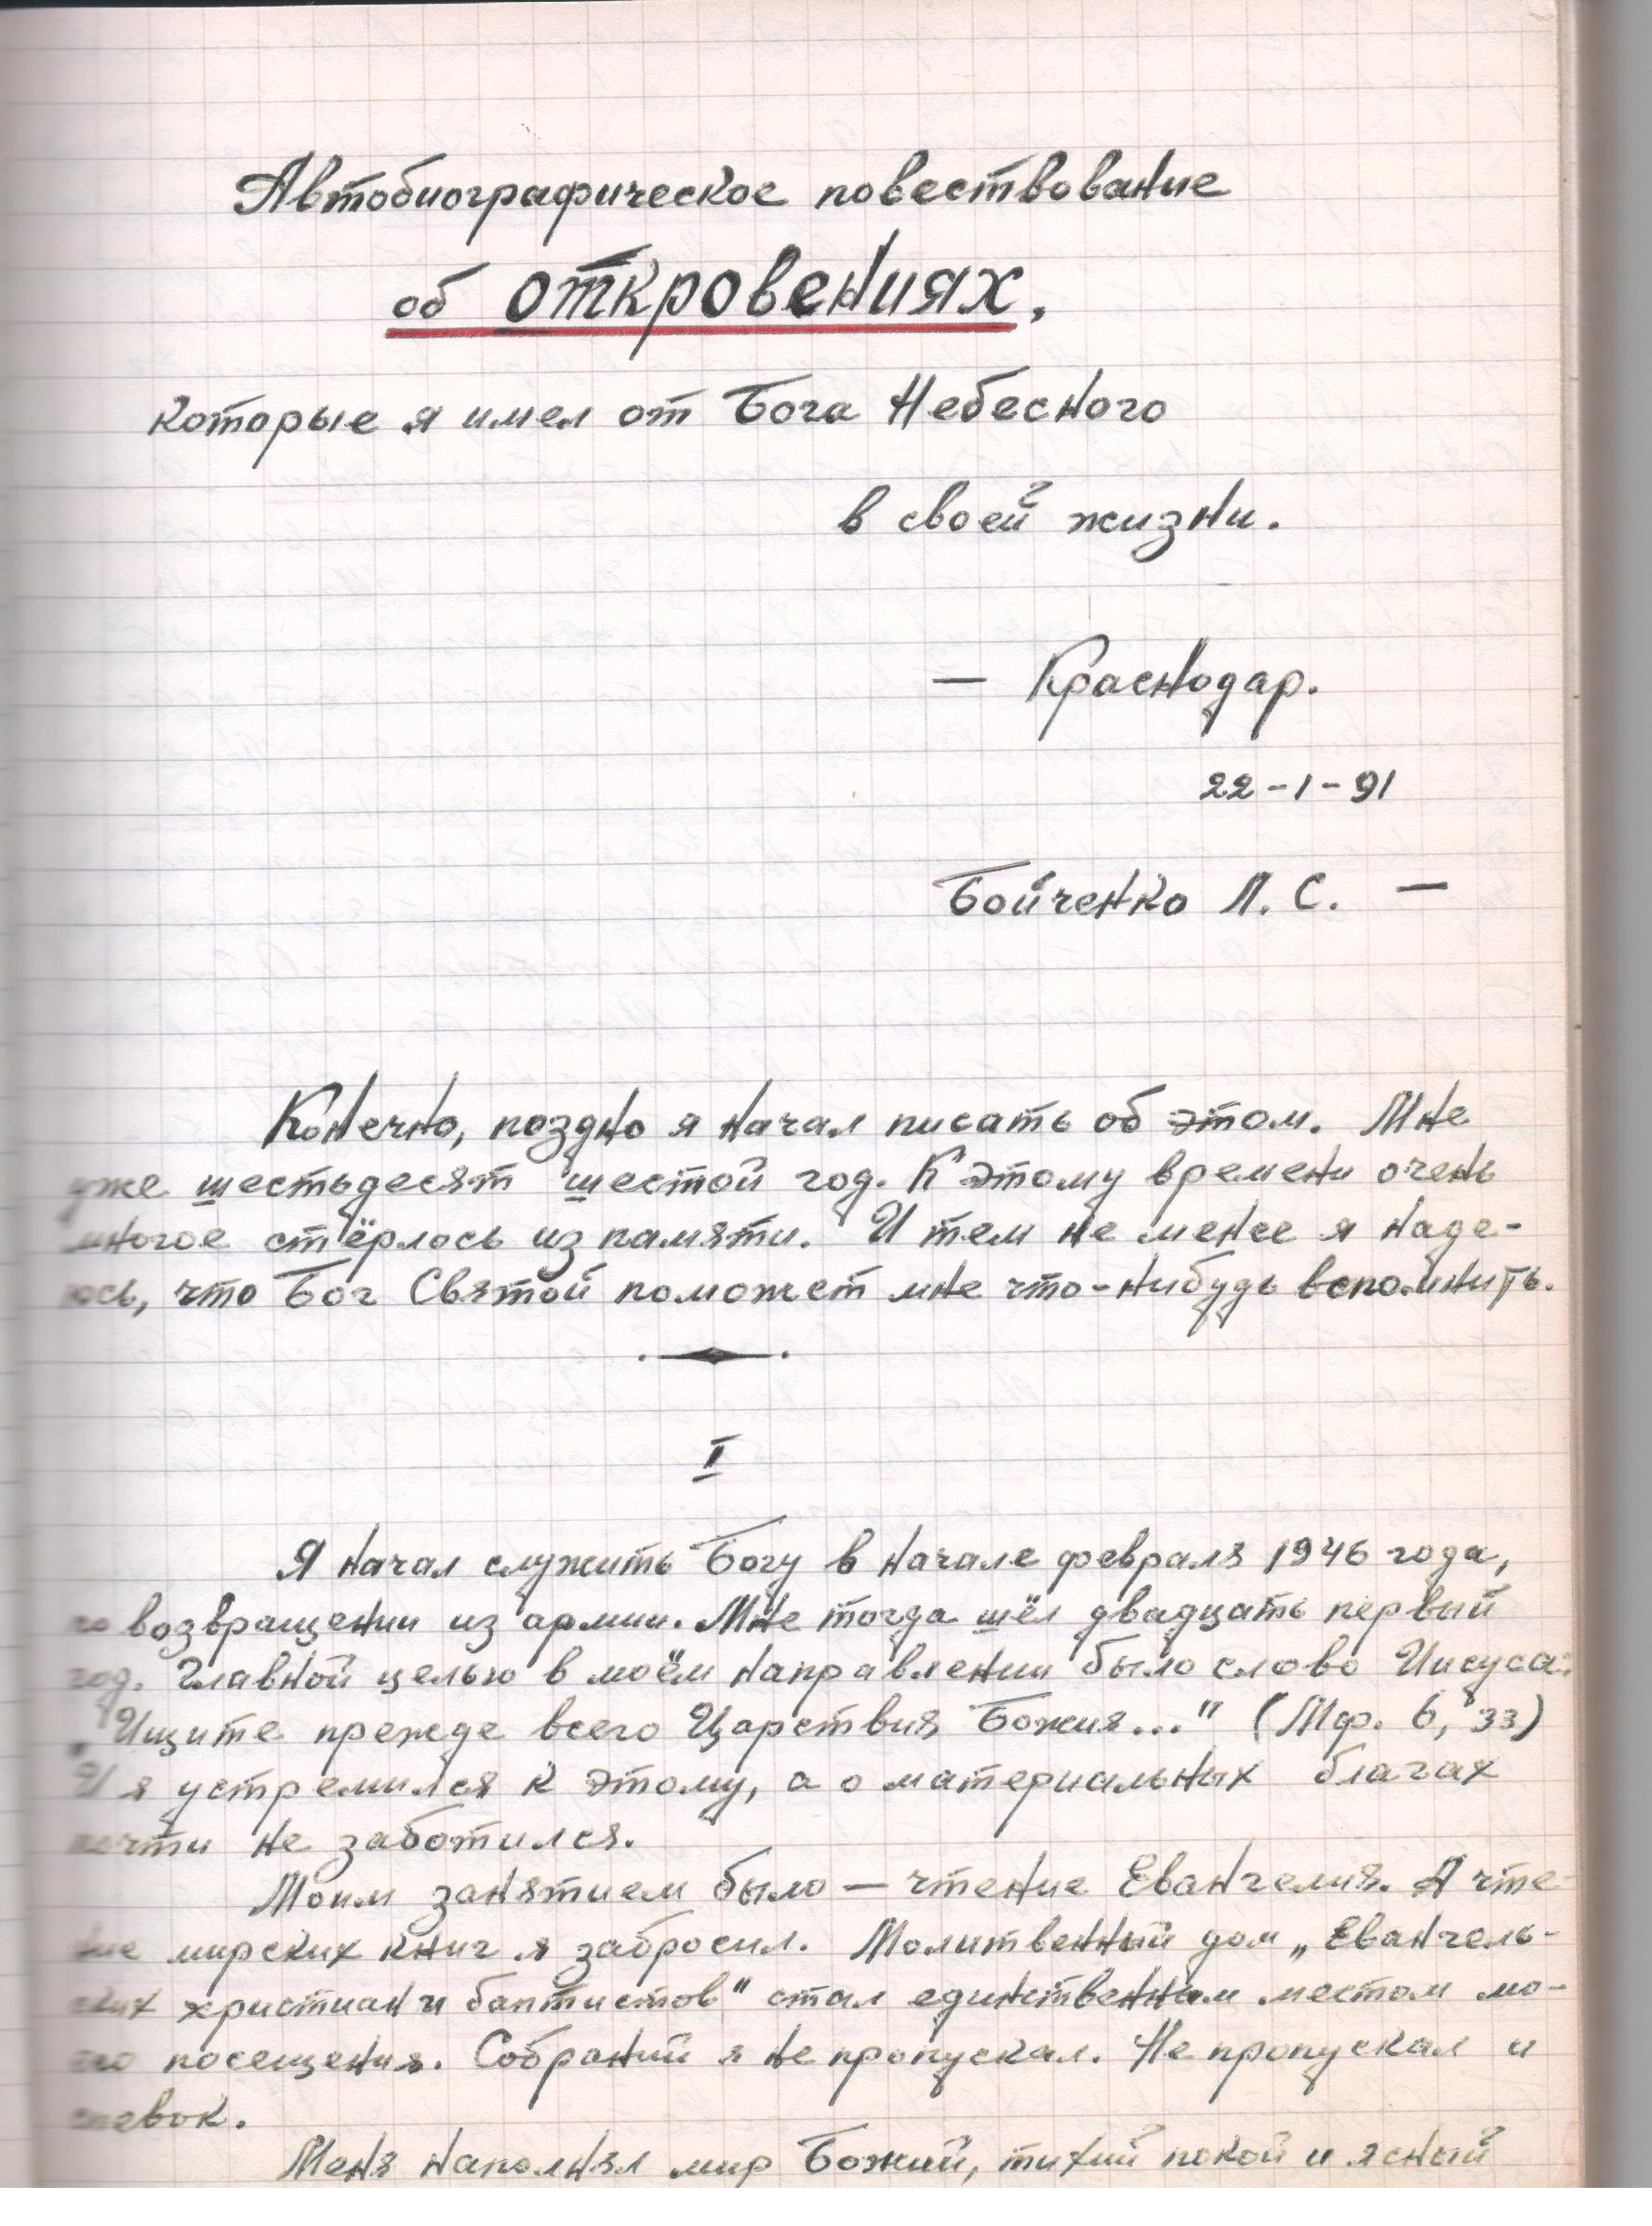 Автобиографическое повествование
об откровениях,
которые я имел от Бога Небесного
в своей жизни.
— Краснодар.
22-1-91
Бойченко Л. С. —
Конечно, поздно я начал писать об этом. Мне
уже шестьдесят шестой год. К этому времени очень
многое стёрлось из памяти. И тем не менее я наде-
юсь, что Бог Святой поможет мне что-нибудь вспомнить.
I
Я начал служить Богу в начале февраля 1946 года,
по возвращении из армии. Мне тогда шёл двадцать первый
год. Главной целью в моём направлении было слово Иисуса:
„Ищите прежде всего Царствия Божия..." (Мф. 6, 33)
И я устремился к этому, а о материальных благах
почти не заботился.
Моим занятием было — чтение Евангелия. А чте-
ние мирских книг я забросил. Молитвенный дом „Евангель-
ских христиан и баптистов" стал единственным местом мо-
его посещения. Собраний я не пропускал. Не пропускал и
спевок.
Меня наполнял мир Божий, тихий покой и ясный